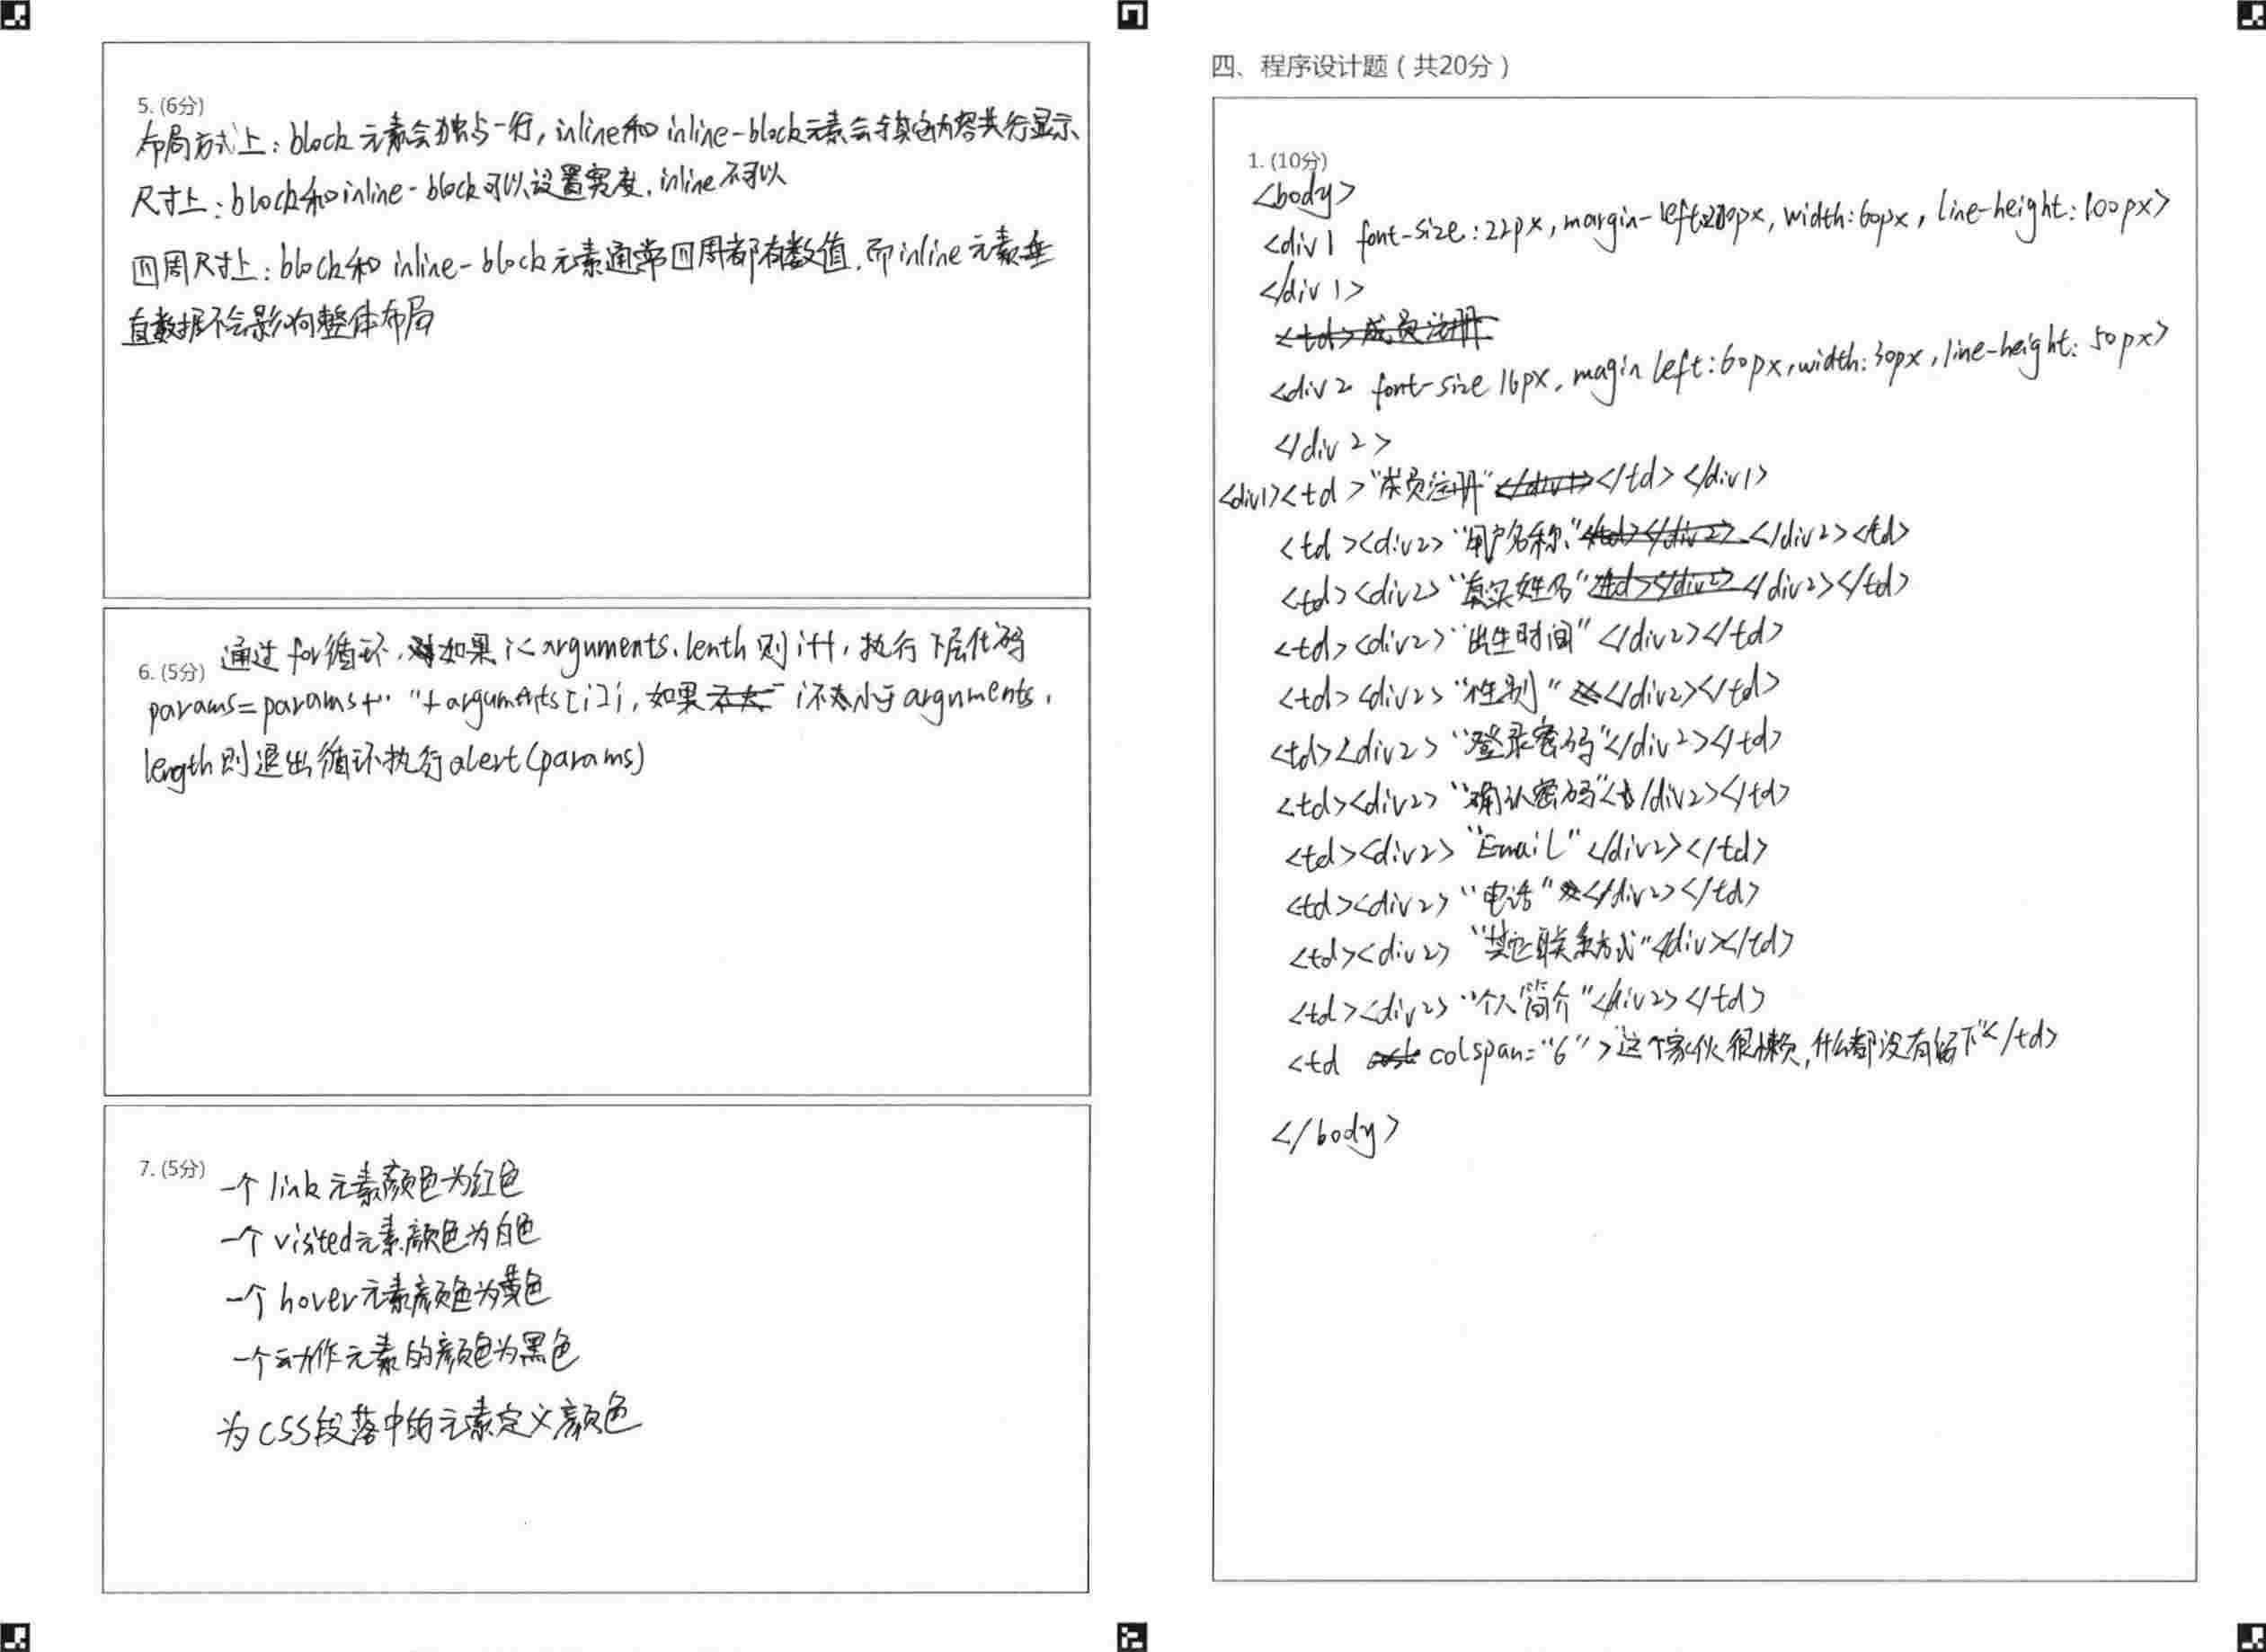 5. (6分)
布局方式上：block 元素会独占一行，inline和 inline-block元素会与其它内容共行显示
尺寸上：block和inline-block可以设置宽度，inline不可以
四周尺寸上：block和 inline-block元素通常四周都有数值，而inline元素垂
直数据不会影响整体布局
6. (5分) 通过 for循环，如果 i<arguments.lenth 则 i++，执行下层代码
params=params+" "+arguments[i]i，如果 i不小于arguments.
length则退出循环执行alert(params)
7. (5分) 一个 link元素颜色为红色
一个 visited元素颜色为白色
一个 hover元素颜色为黄色
一个动作元素的颜色为黑色
为CSS段落中的元素定义颜色
四、程序设计题（共20分）
1. (10分)
<body>
<div1 font-size:22px, margin-left:200px, width:60px, line-height:100px>
</div1>
<td>成员注册
<div2 font-size 16px, magin left:60px, width:30px, line-height:50px>
</div2>
<div1><td>"成员注册"</td></div1>
<td><div2>"用户名称"</div2><td>
<td><div2>"真实姓名"</div2></td>
<td><div2>"出生时间"</div2></td>
<td><div2>"性别"</div2></td>
<td><div2>"登录密码"</div2></td>
<td><div2>"确认密码"</div2></td>
<td><div2>"Email"</div2></td>
<td><div2>"电话"</div2></td>
<td><div2>"其它联系方式"</div></td>
<td><div2>"个人简介"</div2></td>
<td colspan="6">这个家伙很懒，什么都没有留下"</td>
</body>